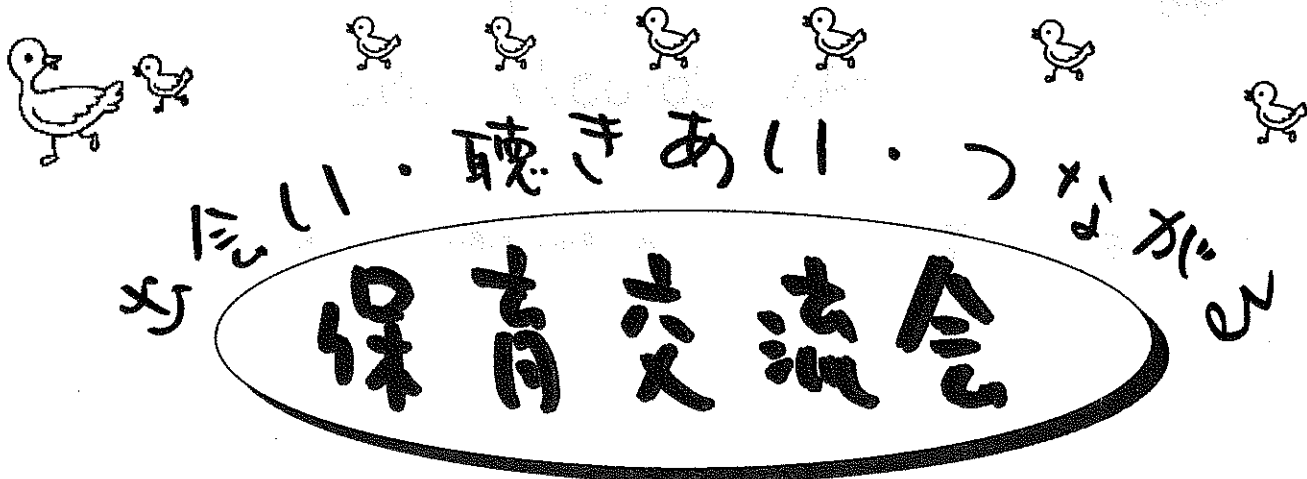 い・聴きあい・つながる
保育交流会